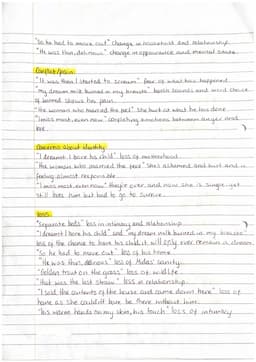 "So he had to move out" change in household and relationship.
"He was thin, delirious" change in appearance and mental state.
Conflict/pain:
"It was then I started to scream" fear of what has happened
"my dream milk burned in my breasts" harsh sounds and word choice
of burned shows her pain.
"The woman who married the fool" she hurt at what he has done
"I miss most, even now" conflicting emotions between anger and
love.
Concerns about identity
"I dreamt I bore his child" loss of motherhood.
"The woman who married the fool" she's ashamed and hurt and is
feeling almost responsible.
"I miss most, even now" they're over and now she is single yet
still loves him but had to go to survive.
Loss
"Separate beds" loss in intimacy and relationship
"I dreamt I bore his child" and "my dream milk burned in my breasts"
loss of the chance to have his child, it will only ever remain a dream.
"So he had to move out" loss of his home
"He was thin, delirious" loss of Midas' sanity.
"Golden trout on the grass" loss of wildlife
"That was the last straw" loss in relationship.
"I sold the contents of the house and came down here" loss of
home as she couldn't bare be there without him.
"his warm hands on my skin, his touch" loss of intimacy.